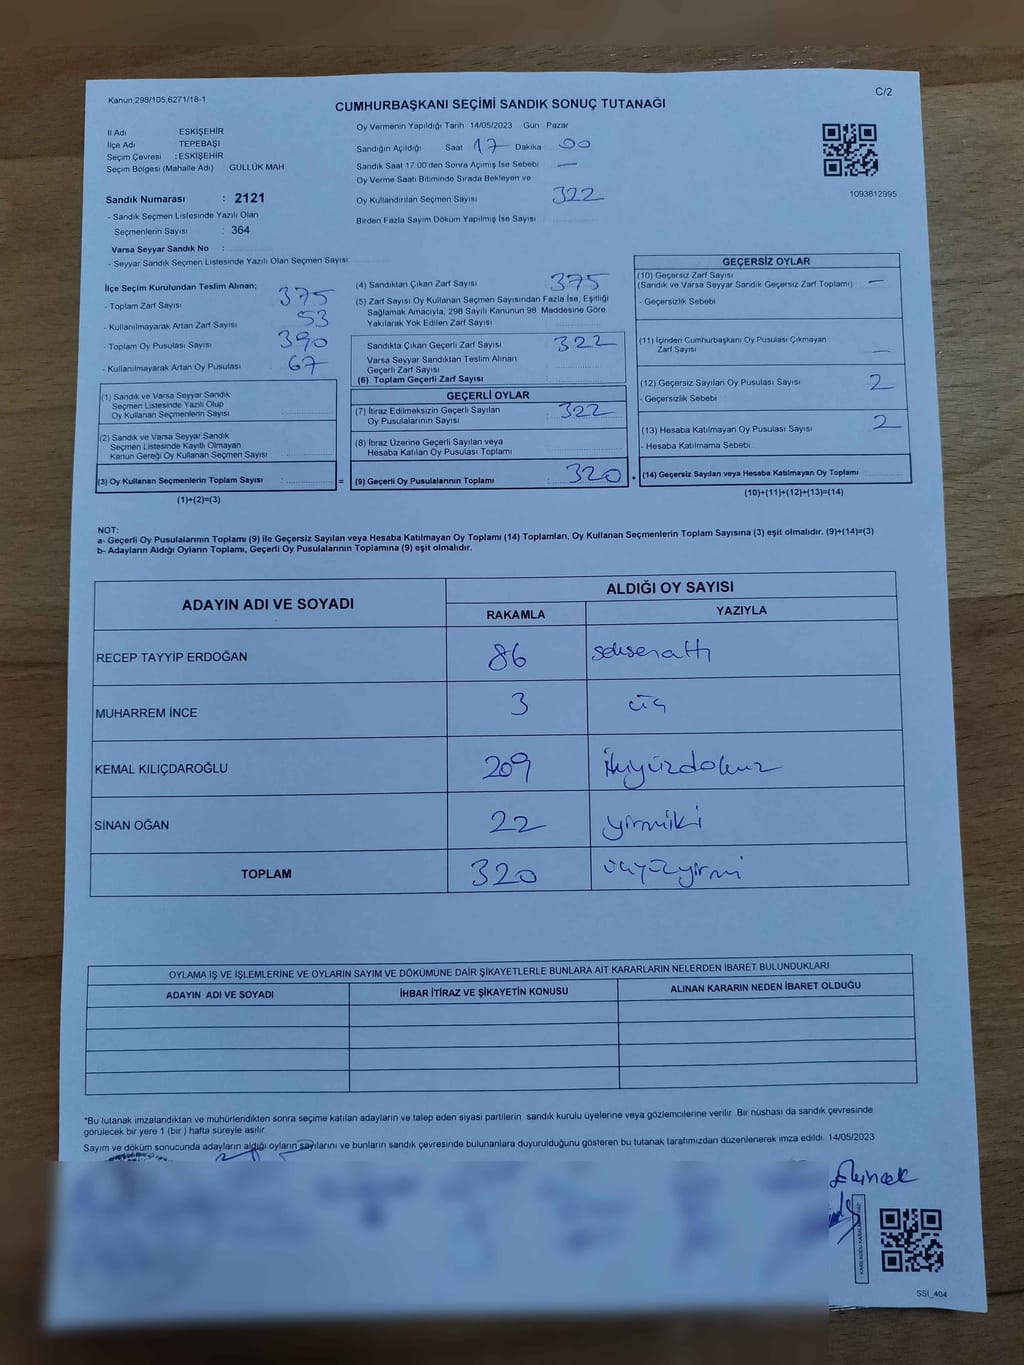 Kanun;298/105,6271/18-1
C/2
CUMHURBAŞKANI SEÇİMİ SANDIK SONUÇ TUTANAĞI
İl Adı ESKİŞEHİR
İlçe Adı TEPEBAŞI
Seçim Çevresi : ESKİŞEHİR
Seçim Bölgesi (Mahalle Adı) GÜLLÜK MAH
Sandık Numarası : 2121
- Sandık Seçmen Listesinde Yazılı Olan
Seçmenlerin Sayısı : 364
Varsa Seyyar Sandık No :
- Seyyar Sandık Seçmen Listesinde Yazılı Olan Seçmen Sayısı
Oy Vermenin Yapıldığı Tarih 14/05/2023 Gün Pazar
Sandığın Açıldığı Saat 17 Dakika 00
Sandık Saat 17:00'den Sonra Açımış İse Sebebi —
Oy Verme Saati Bitiminde Sırada Bekleyen ve
Oy Kullandırılan Seçmen Sayısı 322
Birden Fazla Sayım Döküm Yapılmış İse Sayısı
1093812995
İlçe Seçim Kurulundan Teslim Alınan;
- Toplam Zarf Sayısı 375
- Kullanılmayarak Artan Zarf Sayısı 53
- Toplam Oy Pusulası Sayısı 390
- Kullanılmayarak Artan Oy Pusulası 67
(1) Sandık ve Varsa Seyyar Sandık
Seçmen Listesinde Yazılı Olup
Oy Kullanan Seçmenlerin Sayısı
(2) Sandık ve Varsa Seyyar Sandık
Seçmen Listesinde Kayıtlı Olmayan
Kanun Gereği Oy Kullanan Seçmen Sayısı
(3) Oy Kullanan Seçmenlerin Toplam Sayısı : =
(1)+(2)=(3)
(4) Sandıktan Çıkan Zarf Sayısı 375
(5) Zarf Sayısı Oy Kullanan Seçmen Sayısından Fazla İse, Eşitliği
Sağlamak Amacıyla, 298 Sayılı Kanunun 98. Maddesine Göre
Yakılarak Yok Edilen Zarf Sayısı
Sandıkta Çıkan Geçerli Zarf Sayısı 322
Varsa Seyyar Sandıktan Teslim Alınan
Geçerli Zarf Sayısı
(6) Toplam Geçerli Zarf Sayısı
GEÇERLİ OYLAR
(7) İtiraz Edilmeksizin Geçerli Sayılan
Oy Pusulasının Sayısı 322
(8) İtiraz Üzerine Geçerli Sayılan veya
Hesaba Katılan Oy Pusulası Toplamı
(9) Geçerli Oy Pusulalarının Toplamı 320 +
GEÇERSİZ OYLAR
(10) Geçersiz Zarf Sayısı
(Sandık ve Varsa Seyyar Sandık Geçersiz Zarf Toplamı) —
- Geçersizlik Sebebi
(11) İçinden Cumhurbaşkanı Oy Pusulası Çıkmayan
Zarf Sayısı —
(12) Geçersiz Sayılan Oy Pusulası Sayısı 2
- Geçersizlik Sebebi
(13) Hesaba Katılmayan Oy Pusulası Sayısı 2
- Hesaba Katılmama Sebebi
(14) Geçersiz Sayılan veya Hesaba Katılmayan Oy Toplamı
(10)+(11)+(12)+(13)=(14)
NOT:
a- Geçerli Oy Pusulalarının Toplamı (9) ile Geçersiz Sayılan veya Hesaba Katılmayan Oy Toplamı (14) Toplamları, Oy Kullanan Seçmenlerin Toplam Sayısına (3) eşit olmalıdır. (9)+(14)=(3)
b- Adayların Aldığı Oyların Toplamı, Geçerli Oy Pusulalarının Toplamına (9) eşit olmalıdır.
ADAYIN ADI VE SOYADI
ALDIĞI OY SAYISI
RAKAMLA YAZIYLA
RECEP TAYYİP ERDOĞAN 86 seksenaltı
MUHARREM İNCE 3 üç
KEMAL KILIÇDAROĞLU 209 ikiyüzdokuz
SİNAN OĞAN 22 yirmiiki
TOPLAM 320 üçyüzyirmi
OYLAMA İŞ VE İŞLEMLERİNE VE OYLARIN SAYIM VE DÖKÜMÜNE DAİR ŞİKAYETLERLE BUNLARA AİT KARARLARIN NELERDEN İBARET BULUNDUKLARI
ADAYIN ADI VE SOYADI İHBAR İTİRAZ VE ŞİKAYETİN KONUSU ALINAN KARARIN NEDEN İBARET OLDUĞU
*Bu tutanak imzalandıktan ve mühürlendikten sonra seçime katılan adayların ve talep eden siyasi partilerin sandık kurulu üyelerine veya gözlemcilerine verilir. Bir nüshası da sandık çevresinde
görülecek bir yere 1 (bir ) hafta süreyle asılır.
Sayım ve döküm sonucunda adayların aldığı oyların sayılarını ve bunların sandık çevresinde bulunanlara duyurulduğunu gösteren bu tutanak tarafımızdan düzenlenerek imza edildi. 14/05/2023
SSİ_404